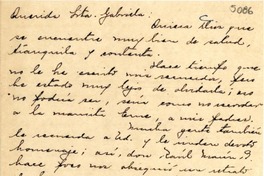 5086
Querida Srta. Gabriela:
Quiera Dios que
se encuentre muy bien de salud,
tranquila y contenta.
Hace tiempo que
no le he escrito mis recuerdos, pero
he estado muy lejos de olvidarla; eso
no podría ser, sería como no recordar
a la mamita tierna, a mis padres.
Mucha gente también
la recuerda a Ud. y le rinden devoto
homenaje; así, don Raúl
hace pres nos obsequió un retrato